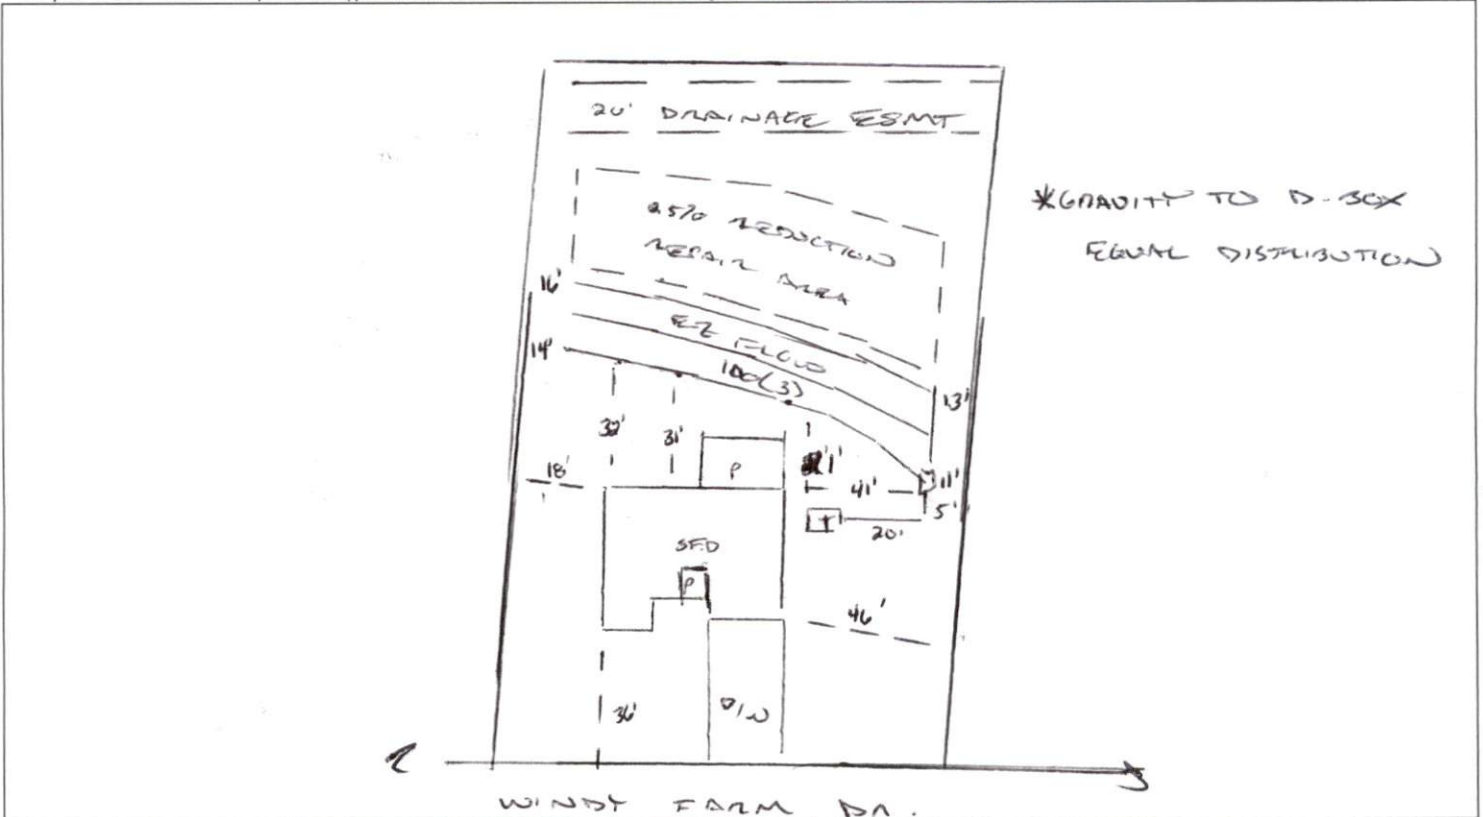 20' DRAINAGE ESMT
*GRAVITY TO D-BOX
EQUAL DISTRIBUTION
25% REDUCTION
REPAIR AREA
16'
EZ FLOW
100(3)
14'
13'
32'
31'
18'
P
41'
11'
5'
T
20'
SFD
P
46'
36'
D/W
WINDY FARM DR.